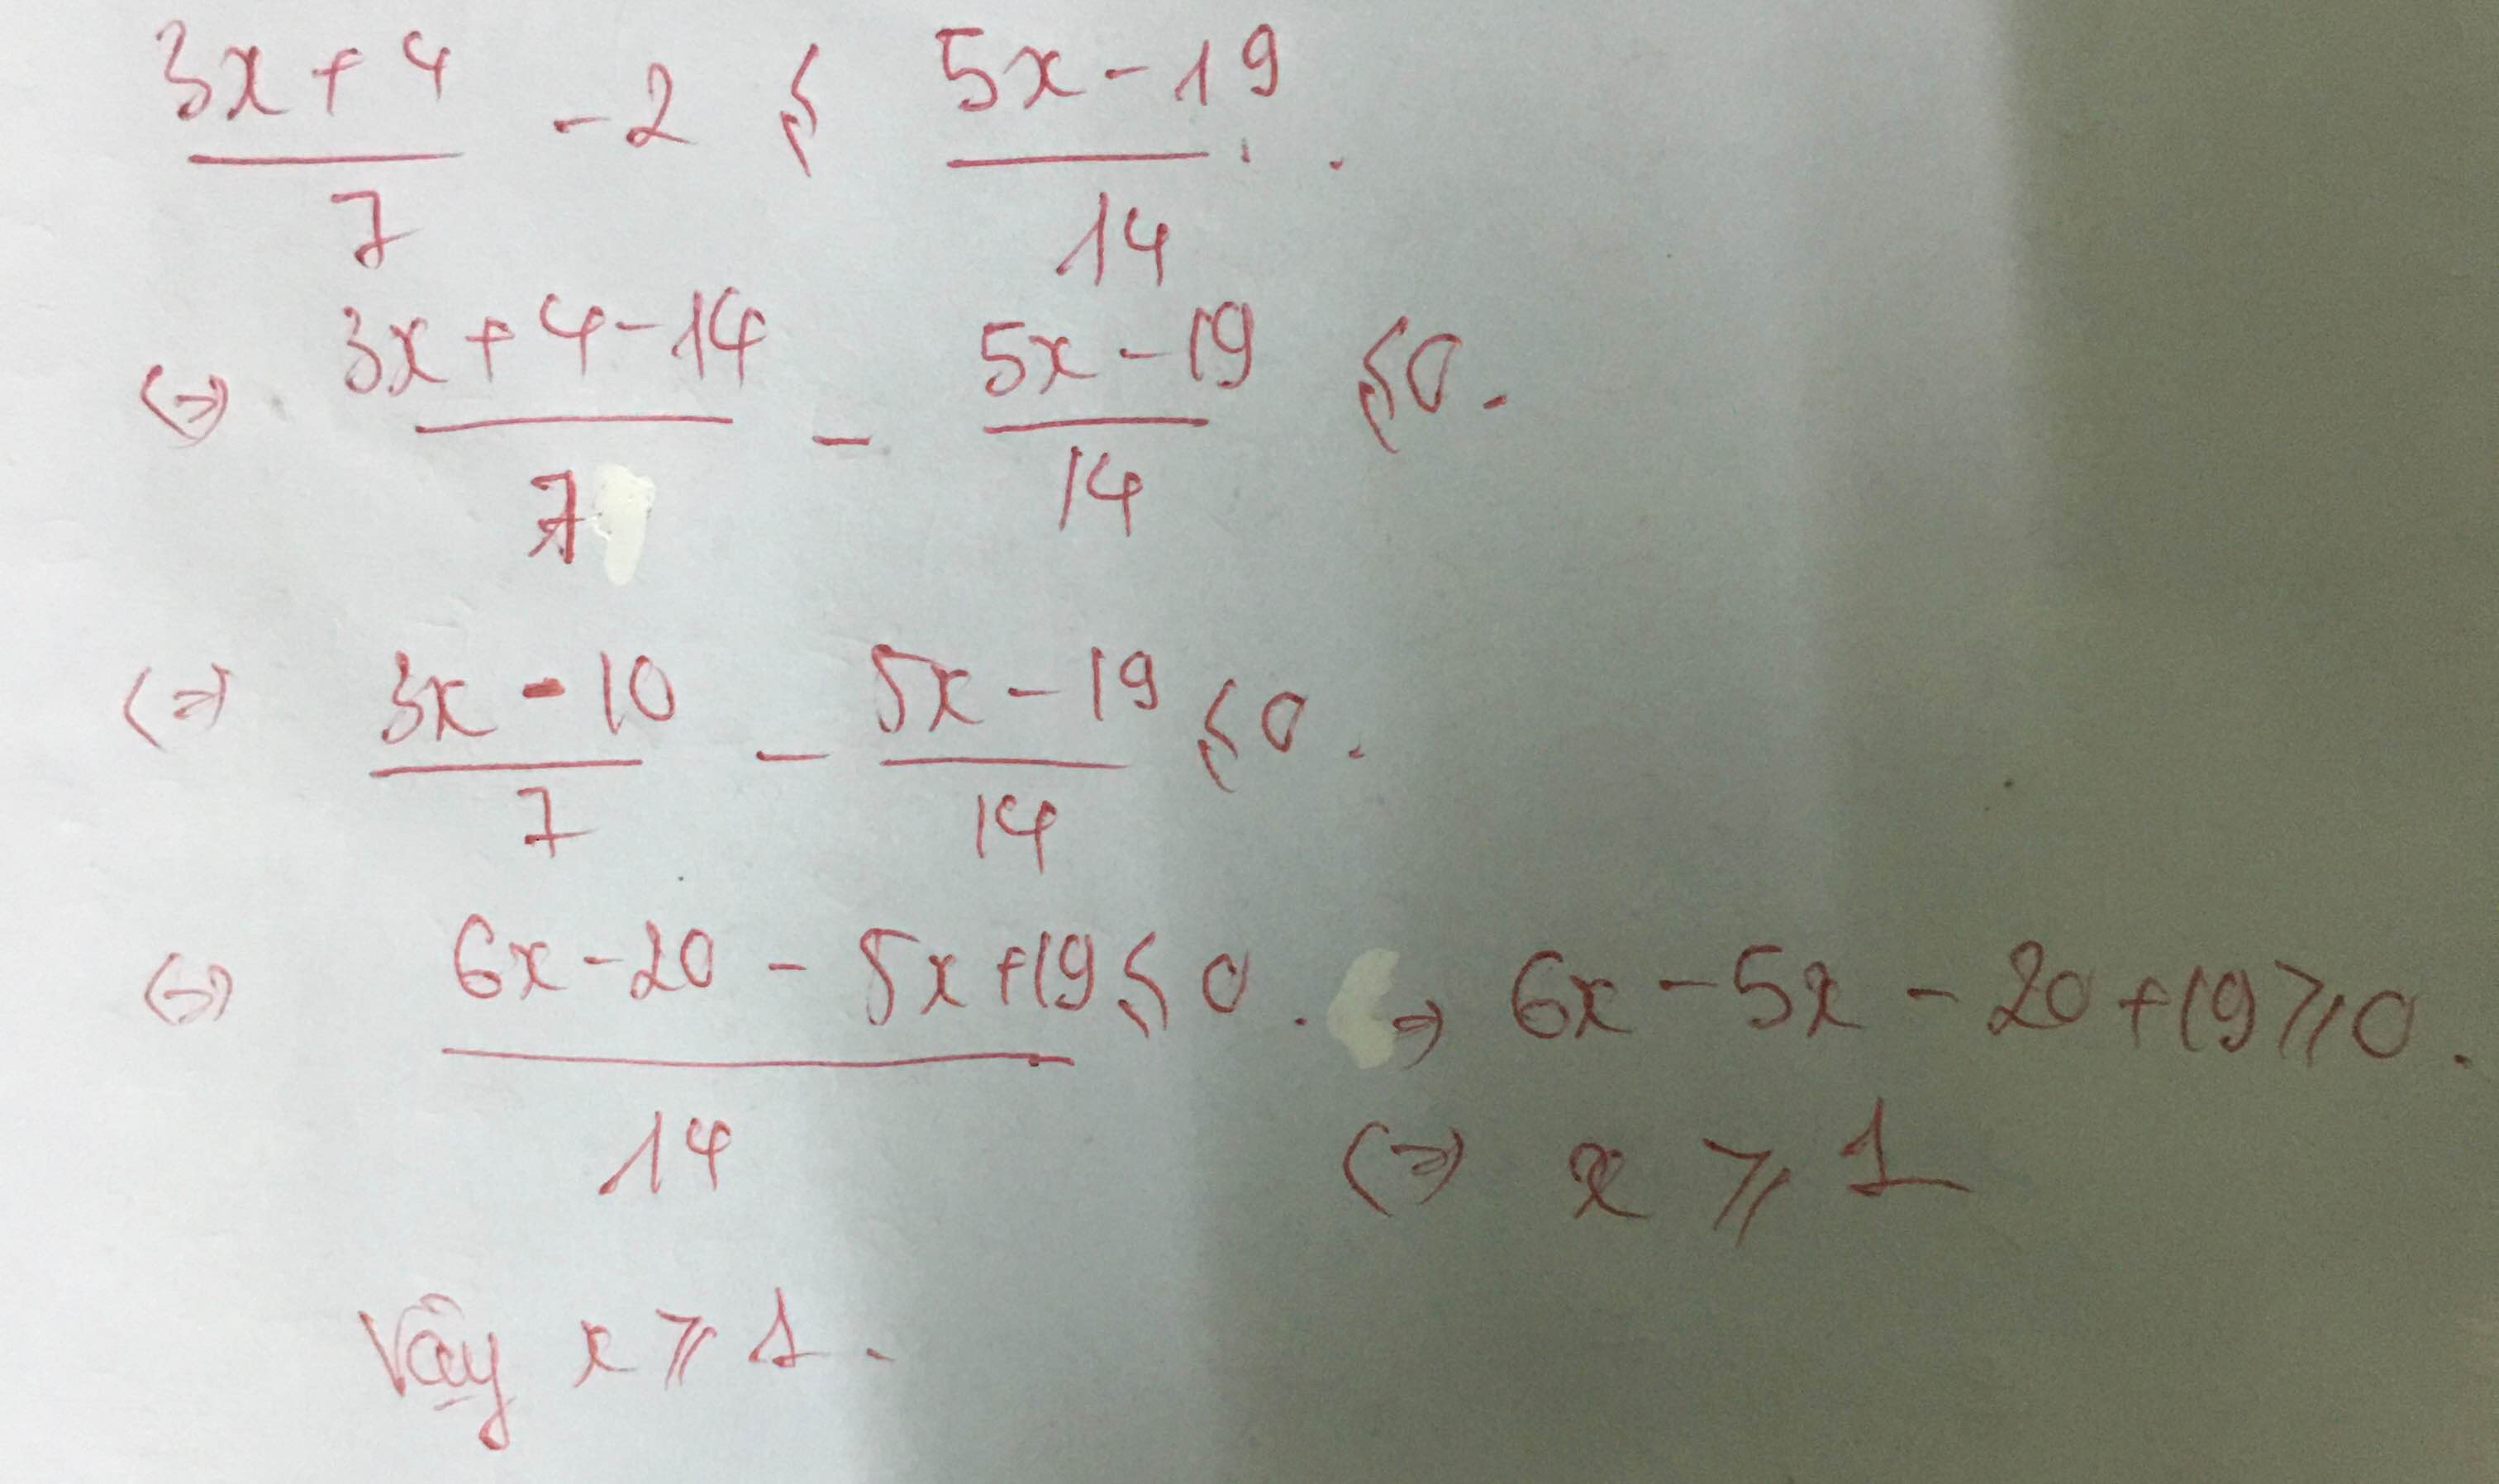 (3x + 4)/7 - 2 ≤ (5x - 19)/14 .
(=) (3x + 4 - 14)/7 - (5x - 19)/14 ≤ 0 .
(=) (3x - 10)/7 - (5x - 19)/14 ≤ 0 .
(=) (6x - 20 - 5x + 19)/14 ≤ 0 . => 6x - 5x - 20 + 19 ≥ 0 .
(=) x ≥ 1
Vậy x ≥ 1 .